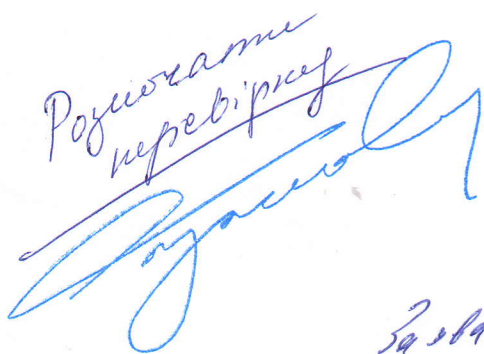 Розпочати
перевірку
Заява